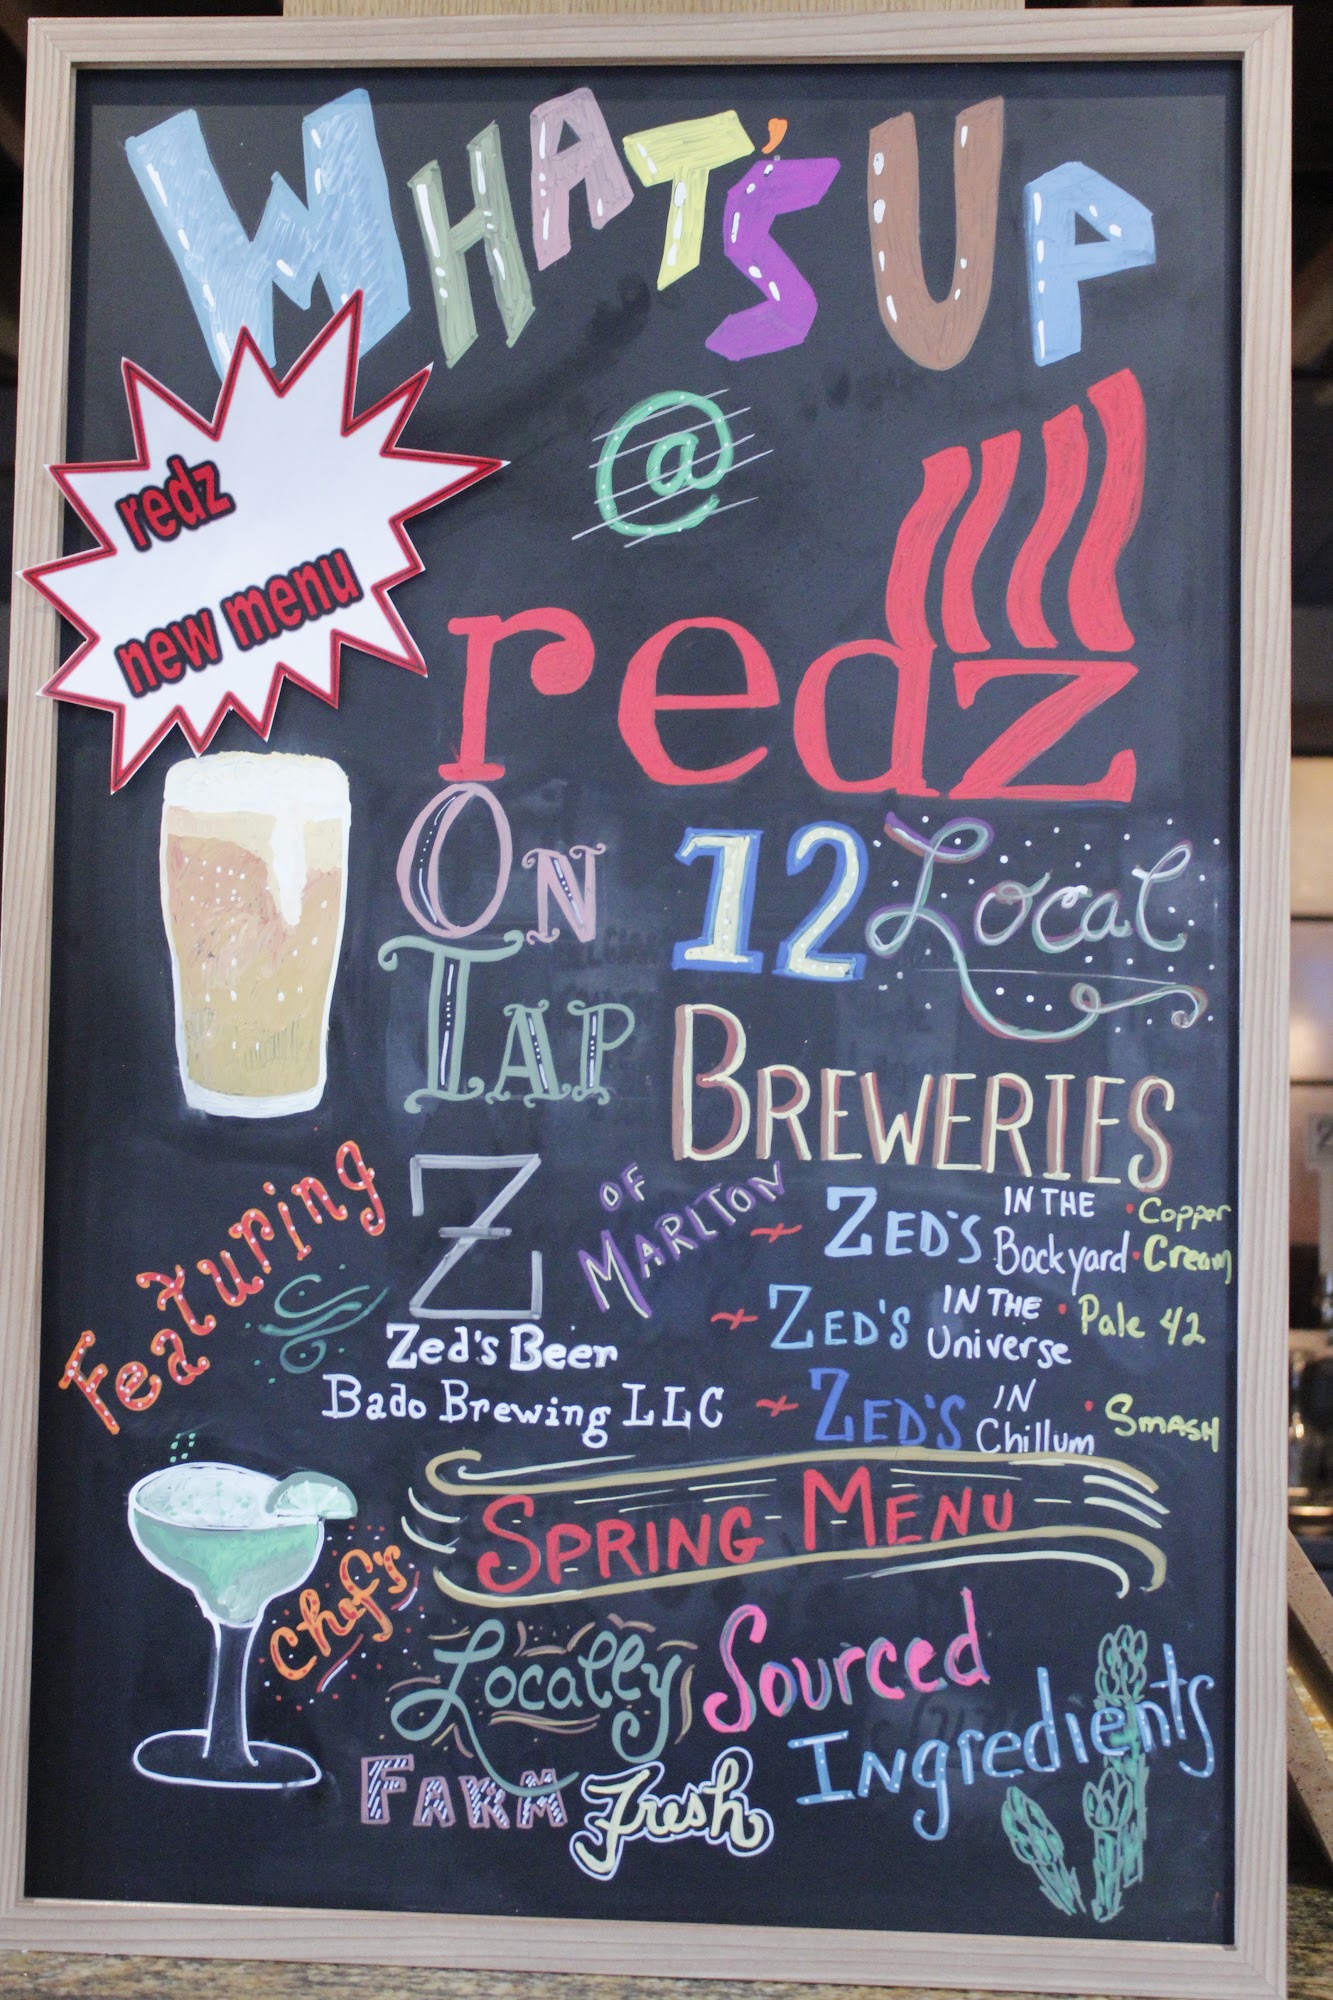 WHAT'S UP
@
redz
redz
new menu
ON TAP
12 Local
BREWERIES
Featuring
Z OF MARLTON
Zed's Beer
Bado Brewing LLC
ZED'S IN THE Backyard • Copper • Cream
ZED'S IN THE Universe • Pale 42
ZED'S IN Chillum • SMASH
Chef's
SPRING MENU
Locally Sourced
Ingredients
FARM Fresh